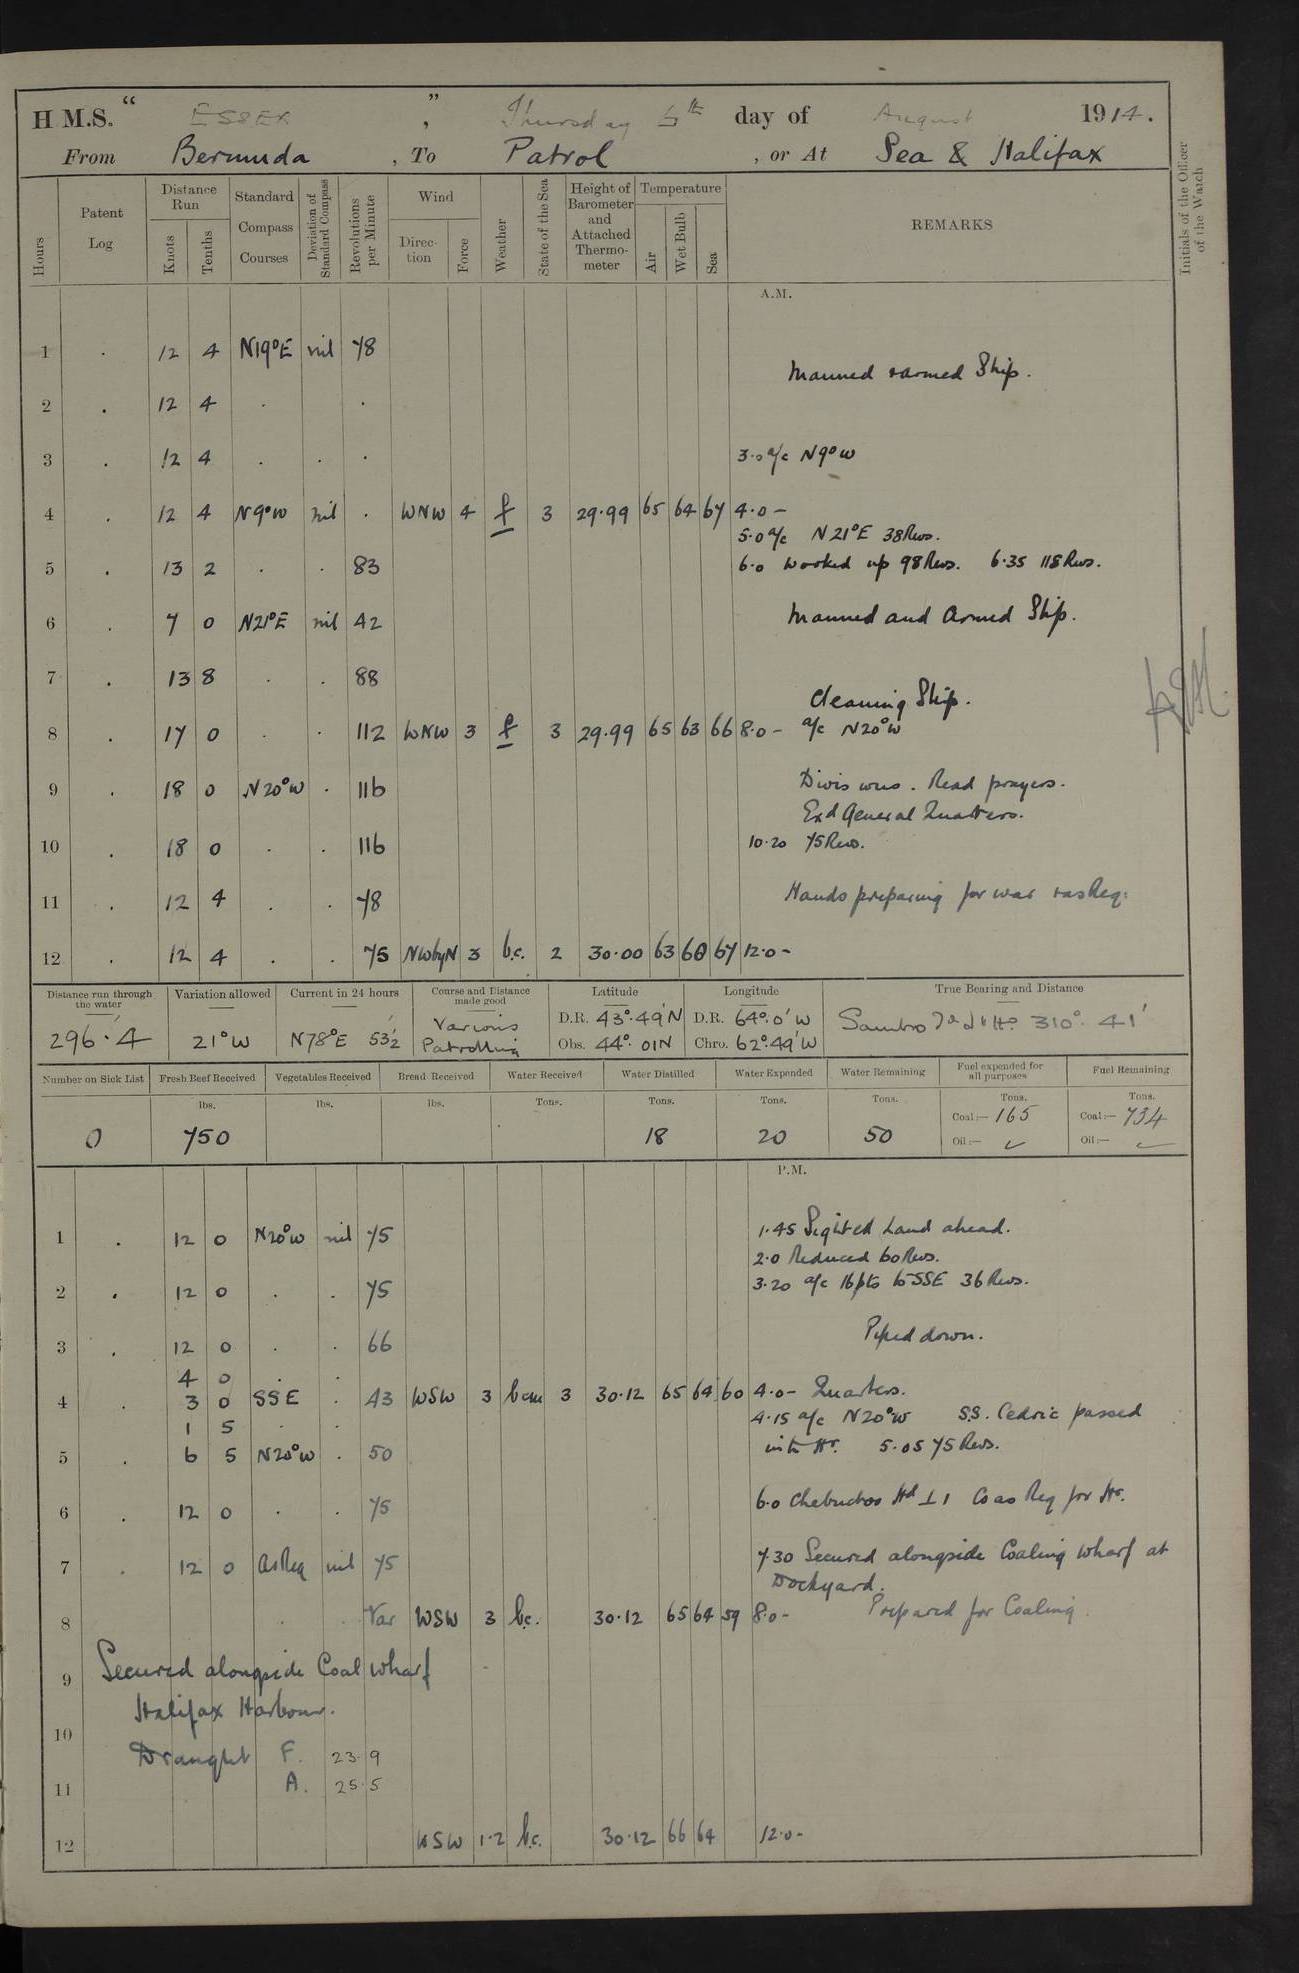 H.M.S. “ ESSEX ”, Thursday 6th day of August 1914.
From Bermuda, To Patrol, or At Sea & Halifax
Hours Patent Log Distance Run Knots Tenths Standard Compass Courses Deviation of Standard Compass Revolutions per Minute Wind Direction Force Weather State of the Sea Height of Barometer and Attached Thermometer Temperature Air Wet Bulb Sea REMARKS Initials of the Officer of the Watch
A.M.
1 . 12 4 N19°E nil 78
Manned & armed Ship.
2 . 12 4 . .
3 . 12 4 . . . 3.0 a/c N9°W
4 . 12 4 N9°W nil . WNW 4 f 3 29.99 65 64 67 4.0 –
5.0 a/c N21°E 38 Revs.
5 . 13 2 . . 83 6.0 Worked up 98 Revs. 6.35 118 Revs.
6 . 7 0 N21°E nil 42 Manned and Armed Ship.
7 . 13 8 . . 88
Cleaning Ship.
8 . 17 0 . . 112 WNW 3 f 3 29.99 65 63 66 8.0 – a/c N20°W
9 . 18 0 N20°W . 116 Divisions. Read prayers.
Exd General Quarters.
10 . 18 0 . . 116 10.20 75 Revs.
11 . 12 4 . . 78 Hands preparing for war & as Req:
12 . 12 4 . . 75 NWbyN 3 b.c. 2 30.00 63 60 67 12.0 –
Distance run through the water Variation allowed Current in 24 hours Course and Distance made good Latitude Longitude True Bearing and Distance
296.4 21°W N78°E 53½' Various Patrolling D.R. 43°.49'N D.R. 64°.0'W Sambro 310° 41'
Obs. 44°.01N Chro. 62°.49'W
Number on Sick List Fresh Beef Received Vegetables Received Bread Received Water Received Water Distilled Water Expended Water Remaining Fuel expended for all purposes Fuel Remaining
lbs. lbs. lbs. Tons. Tons. Tons. Tons. Tons. Tons.
0 750 18 20 50 Coal:— 165 Coal:— 734
Oil:— ✓ Oil:— ✓
P.M.
1 . 12 0 N20°W nil 75 1.45 Sighted Land ahead.
2.0 Reduced 60 Revs.
2 . 12 0 . . 75 3.20 a/c 16 pts to SSE 36 Revs.
3 . 12 0 . . 66 Piped down.
4 0 . .
4 . 3 0 SSE . 43 WSW 3 bcm 3 30.12 65 64 60 4.0 – Quarters.
1 5 . . 4.15 a/c N20°W S.S. Cedric passed
5 . 6 5 N20°W . 50 into Hr. 5.05 75 Revs.
6 . 12 0 . . 75 6.0 Chebuctoo Hd ⊥ 1 Co as Req for Hr.
7 . 12 0 As Req nil 75 7.30 Secured alongside Coaling Wharf at
Dockyard.
8 . . Var WSW 3 b.c. 30.12 65 64 59 8.0 – Prepared for Coaling
9 Secured alongside Coal Wharf
Halifax Harbour.
10
Draught F. 23.9
11 A. 25.5
12 WSW 1.2 b.c. 30.12 66 64 12.0 –